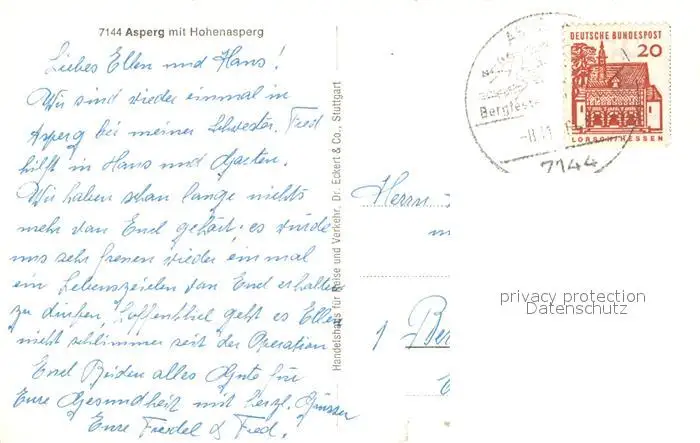 7144 Asperg mit Hohenasperg
Liebes Ellen und Hans!
Wir sind wieder einmal in
Asperg bei meiner Schwester. Fred
hilft in Haus und Garten.
Wir haben schon lange nichts
mehr von Euch gehört, es würde
uns sehr freuen wieder einmal
ein Lebenszeichen von Euch erhalten
zu dürfen, hoffentlich geht es Ellen
nicht schlimmer seit der Operation
Euch Beiden alles Gute für
Eure Gesundheit mit herzl. Grüssen
Eure Friedel & Fred.
Handelshaus für Reise und Verkehr, Dr. Eckert & Co., Stuttgart
Bergfest
7144
DEUTSCHE BUNDESPOST
20
LORSCH/HESSEN
Herrn
1 Ber
privacy protection
Datenschutz